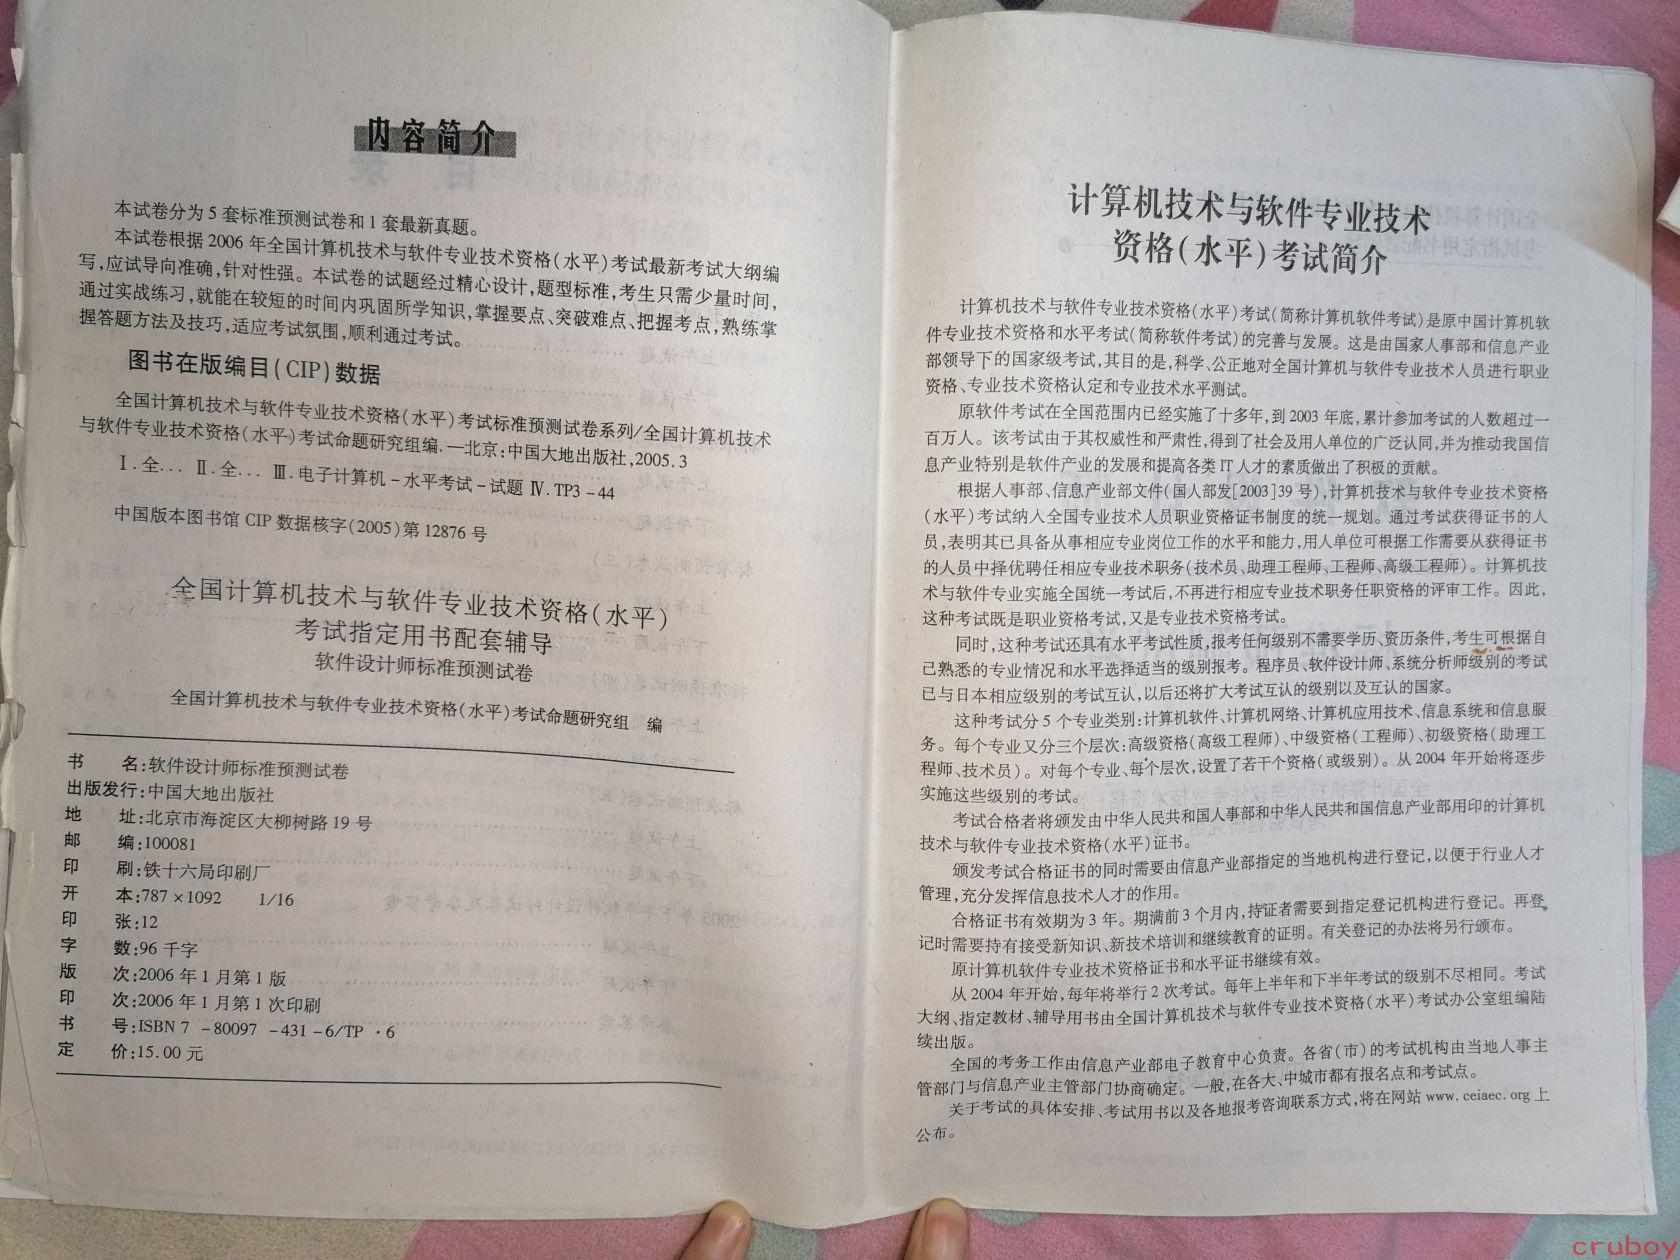 内容简介
本试卷分为 5 套标准预测试卷和 1 套最新真题。
本试卷根据 2006 年全国计算机技术与软件专业技术资格(水平)考试最新考试大纲编
写,应试导向准确,针对性强。本试卷的试题经过精心设计,题型标准,考生只需少量时间,
通过实战练习,就能在较短的时间内巩固所学知识,掌握要点、突破难点、把握考点,熟练掌
握答题方法及技巧,适应考试氛围,顺利通过考试。
图书在版编目(CIP)数据
全国计算机技术与软件专业技术资格(水平)考试标准预测试卷系列/全国计算机技术
与软件专业技术资格(水平)考试命题研究组编.—北京:中国大地出版社,2005.3
Ⅰ.全... Ⅱ.全... Ⅲ.电子计算机-水平考试-试题 Ⅳ.TP3-44
中国版本图书馆 CIP 数据核字(2005)第 12876 号
全国计算机技术与软件专业技术资格(水平)
考试指定用书配套辅导
软件设计师标准预测试卷
全国计算机技术与软件专业技术资格(水平)考试命题研究组 编
书 名:软件设计师标准预测试卷
出版发行:中国大地出版社
地 址:北京市海淀区大柳树路 19 号
邮 编:100081
印 刷:铁十六局印刷厂
开 本:787×1092 1/16
印 张:12
字 数:96 千字
版 次:2006 年 1 月第 1 版
印 次:2006 年 1 月第 1 次印刷
书 号:ISBN 7 -80097 -431 -6/TP ·6
定 价:15.00 元
计算机技术与软件专业技术
资格(水平)考试简介
计算机技术与软件专业技术资格(水平)考试(简称计算机软件考试)是原中国计算机软
件专业技术资格和水平考试(简称软件考试)的完善与发展。这是由国家人事部和信息产业
部领导下的国家级考试,其目的是,科学、公正地对全国计算机与软件专业技术人员进行职业
资格、专业技术资格认定和专业技术水平测试。
原软件考试在全国范围内已经实施了十多年,到 2003 年底,累计参加考试的人数超过一
百万人。该考试由于其权威性和严肃性,得到了社会及用人单位的广泛认同,并为推动我国信
息产业特别是软件产业的发展和提高各类 IT 人才的素质做出了积极的贡献。
根据人事部、信息产业部文件(国人部发[2003]39 号),计算机技术与软件专业技术资格
(水平)考试纳入全国专业技术人员职业资格证书制度的统一规划。通过考试获得证书的人
员,表明其已具备从事相应专业岗位工作的水平和能力,用人单位可根据工作需要从获得证书
的人员中择优聘任相应专业技术职务(技术员、助理工程师、工程师、高级工程师)。计算机技
术与软件专业实施全国统一考试后,不再进行相应专业技术职务任职资格的评审工作。因此,
这种考试既是职业资格考试,又是专业技术资格考试。
同时,这种考试还具有水平考试性质,报考任何级别不需要学历、资历条件,考生可根据自
己熟悉的专业情况和水平选择适当的级别报考。程序员、软件设计师、系统分析师级别的考试
已与日本相应级别的考试互认,以后还将扩大考试互认的级别以及互认的国家。
这种考试分 5 个专业类别:计算机软件、计算机网络、计算机应用技术、信息系统和信息服
务。每个专业又分三个层次:高级资格(高级工程师)、中级资格(工程师)、初级资格(助理工
程师、技术员)。对每个专业、每个层次,设置了若干个资格(或级别)。从 2004 年开始将逐步
实施这些级别的考试。
考试合格者将颁发由中华人民共和国人事部和中华人民共和国信息产业部用印的计算机
技术与软件专业技术资格(水平)证书。
颁发考试合格证书的同时需要由信息产业部指定的当地机构进行登记,以便于行业人才
管理,充分发挥信息技术人才的作用。
合格证书有效期为 3 年。期满前 3 个月内,持证者需要到指定登记机构进行登记。再登
记时需要持有接受新知识、新技术培训和继续教育的证明。有关登记的办法将另行颁布。
原计算机软件专业技术资格证书和水平证书继续有效。
从 2004 年开始,每年将举行 2 次考试。每年上半年和下半年考试的级别不尽相同。考试
大纲、指定教材、辅导用书由全国计算机技术与软件专业技术资格(水平)考试办公室组编陆
续出版。
全国的考务工作由信息产业部电子教育中心负责。各省(市)的考试机构由当地人事主
管部门与信息产业主管部门协商确定。一般,在各大、中城市都有报名点和考试点。
关于考试的具体安排、考试用书以及各地报考咨询联系方式,将在网站 www.ceiaec.org 上
公布。
cruboy